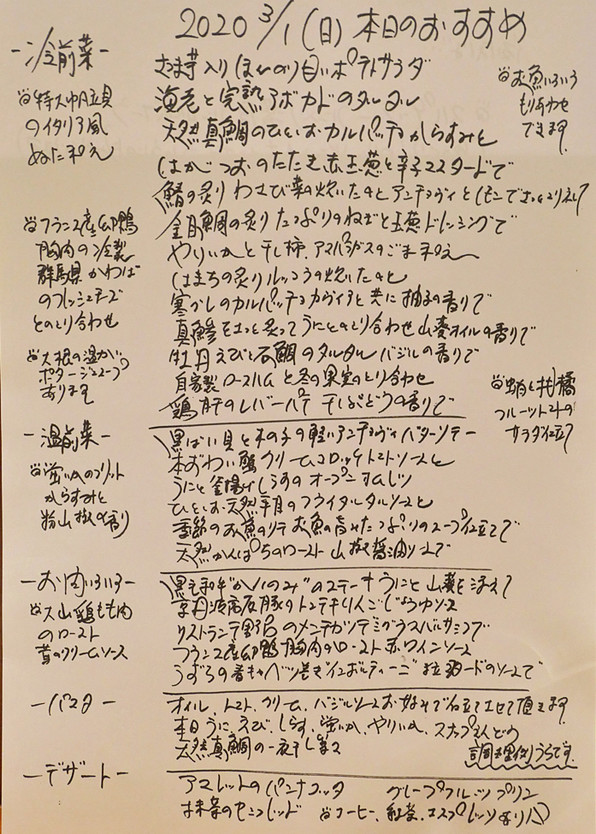 2020 3/1(日)本日のおすすめ
-冷前菜-
入り ほんのり甘いポテトサラダ
海老と完熟アボカドのタルタル
天然真鯛のひとしおカルパッチョ からすみと
はがつおのたたき 赤玉葱と辛子マスタードで
鰆の炙り わさび菜の炊いたのとアンチョヴィと
金目鯛の炙り たっぷりのねぎと玉葱ドレッシングで
やりいかと干し柿、アスパラガスのごま和え
はまちの炙り ルッコラの炊いたのと
寒ぶしのカルパッチョ カヴィアと共に 柚子の香りで
真鯵をさっと炙って うにとのとり合わせ 山葵オイルの香りで
牡丹えびと石鯛のタルタル バジルの香りで
自家製ロースハムと冬の果実のとり合わせ
鶏肝のレバーパテ 干しぶどうの香りで
特大帆立貝
のイタリア風
ぬた和え
フランス産 鴨
胸肉の冷製
群馬県かわば
のフレッシュチーズ
とのとり合わせ
大根の温かい
ポタージュスープ
あります
お魚いろいろ
もりあわせ
できます
蛸と柑橘
フルーツトマトの
サラダ仕立て
-温前菜-
黒ばい貝ときの子の軽いアンチョヴィバターソテー
本ずわい蟹クリームコロッケ トマトソースと
うにと釜揚げしらすのオープンオムレツ
ひとしお天然平目のフライ タルタルソースと
季節のお魚のソテー お魚の旨みたっぷりのスープ仕立てで
天然かんぱちのロースト 山椒醤油ソースで
蛍いかのフリット
からすみと
粉山椒の香り
-お肉いろいろ-
黒毛和牛“カイノミ”のステーキ うにと山葵を添えて
豚のトンテキ りんごじょうゆソース
リストランテ のメンチカツ デミグラスバルサミコで
フランス産 鴨胸肉のロースト 赤ワインソース
うずらの春キャベツ巻き インボルティーニ 粒マスタードのソースで
大山鶏もも肉
のロースト
茸のクリームソース
-パスタ-
オイル、トマト、クリーム、バジルソース お好みで仕立てさせて頂きます
本日 うに、えび、しらす、蛍いか、やりいか、スナップえんどう
天然真鯛の一夜干し
-デザート-
アマレットのパンナコッタ グレープフルーツプリン
コーヒー、紅茶、エスプレッソ有り